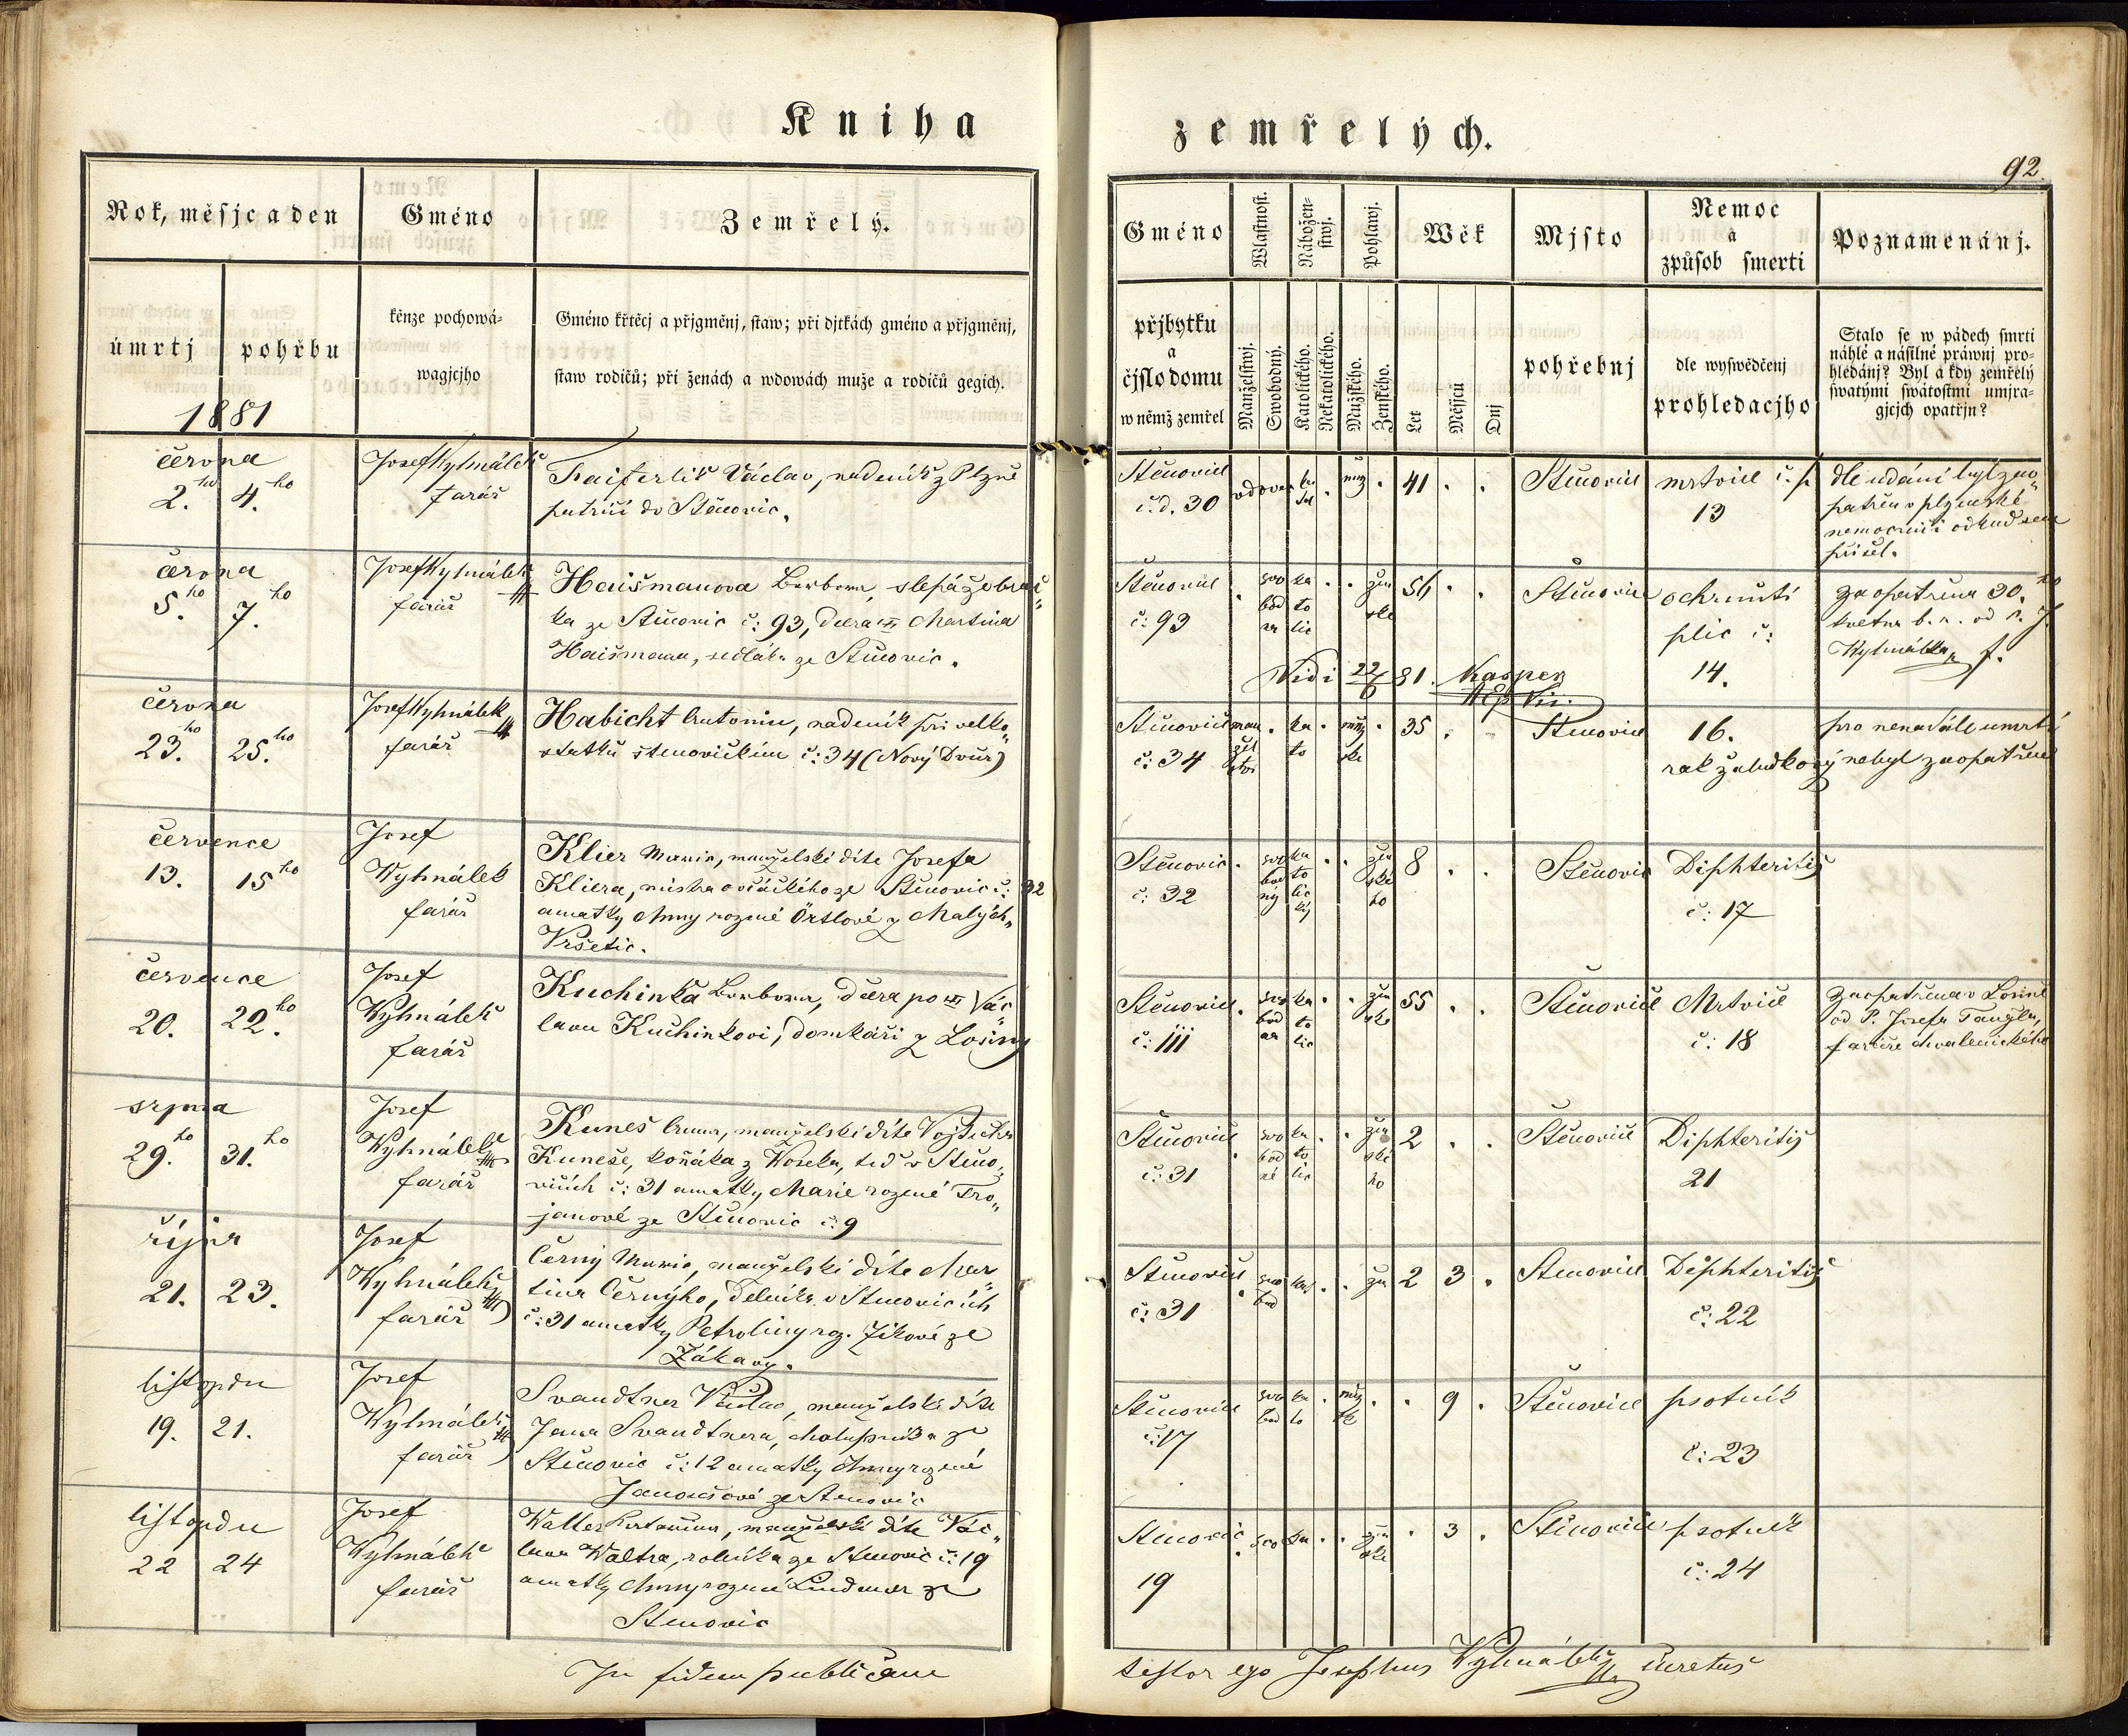 Kniha
zemřelých.
92.
Rok, měsjc a den
Gméno
Zemřelý.
úmrtj
pohřbu
kěnze pochowá-
wagjcjho
Gméno křtěcj a přjgměnj, staw; při djtkách gméno a přjgměnj,
staw rodičů; při ženách a wdowách muže a rodičů gegich.
1881
Gméno
Wlastnost.
Nábožen-
stwj.
Pohlawj.
Wěk
Mjsto
Nemoc
a
způsob smerti
Poznamenánj.
přjbytku
a
čjslo domu
w němž zemřel
Manželstwj.
Swobodný.
Katolického.
Nekatolického.
Mužského.
Ženského.
Let
Měsjců
Dnj
pohřebnj
dle wyswědčenj
prohledacjho
Stalo se w pádech smrti
náhlé a násilné práwnj pro-
hledánj? Byl a kdy zemřelý
swatými swátostmi umjra-
gjcjch opatřjn?
června
2. ho 4. ho
Josef Wyhnálek
farář
Václav, nadeník z Plzně
patřící do Stěnovic.
Štěnovice
č. d. 30
vdovec
muž
41
Štěnovice
mrtvice č. p.
13
dle udání byl zao„
patřen v plzenské
nemocnici odkud sem
přišel.
června
5. ho 7. ho
Josef Wyhnálek
farář
Haišmanova Barbora, slepá žebrač„
ka ze Stěnovic č: 93, dcera Martina
Haišmana, sedláka ze Stěnovic.
Štěnovice
č: 93
svo
bod
ka
to
lic
žen
ske
Štěnovice
ochrnutí
plic č:
14.
zaopatřena 30. ho
května b. r. od P. J.
Wyhnálka f.
Vidi 22/6 81. Kasper
června
23. ho 25. ho
Josef Wyhnálek
farář
Habicht Antonín, nadeník při velko„
statku štenovickém č: 34 (Nový Dvůr)
Stěnovice
č: 34
man
žel
stvi
ka
to
muž
ske
35
Stěnovice
16.
rak žaludkový
pro nenadálé umrtí
nebyl zaopatřen
července
13. 15 ho
Josef
Wyhnálek
farář
Klier Marie, manželské díte Josefa
Kliera, mistra ovčáckého ze Štěnovic č: 32
a matky Anny rozené Örtlové z Malých„
Vršetic.
Štěnovic
č: 32
svo
bod
ný
ka
to
lic
ký
žen
ské
ho
8
Štěnovic
Diphteritis
č: 17
července
20. 22. ho
Josef
Wyhnálek
farář
Kuchinka Barbora, dcera po Vác„
lavu Kuchinkovi, domkáři z Losiny
Stěnovice
č: 111
svo
bod
na
ka
to
lic
žen
ske
55
Štěnovice
Mrtvice
č: 18
zaopatřena v Losině
od P. Josefa Tauzla,
faráře chválenického
srpna
29. ho 31. ho
Josef
Wyhnálek
farář
Kuneš Anna, manželské díte Vojtěcha
Kuneše, koňáka z Woseka, teď v Štěno„
vicích č: 31 a matky Marie rozené Tro„
janové ze Stěnovic č: 9
Štěnovice
č: 31
svo
bod
né
ka
to
lic
žen
ské
ho
2
Štěnovice
Diphteritis
21
října
21. 23.
Josef
Wyhnálek
farář
Černý Marie, manželské díte Mar„
tina Černýho, dělníka v Stěnovicích
č: 31 a matky Petroliny roz. Jíkové ze
Žákavy.
Stěnovice
č: 31
svo
bod
kat
žen
2 3
Stěnovice
Diphteritis
č: 22
listopadu
19. 21.
Josef
Wyhnálek
farář
Svandtner Václav, manželské díte
Jana Svandtnera, chalupníka ze
Štěnovic č: 12 a matky Anny rozené
Janoušové ze Stěnovic
Stěnovice
č: 17
svo
bod
ka
to
muž
9
Štěnovice
psotník
č: 23
listopadu
22 24
Josef
Wyhnálek
farář
Walter Kateřina, manželské díte Vác„
lava Waltra, rolníka ze Stěnovic č: 19
a matky Anny rozené Lindauer ze
Stěnovic
Stěnovic
19
svo
ka
žen
ske
3
Štěnovice
psotník
č: 24
In fidem publicam
testor ego Josephus Wyhnálek curatus